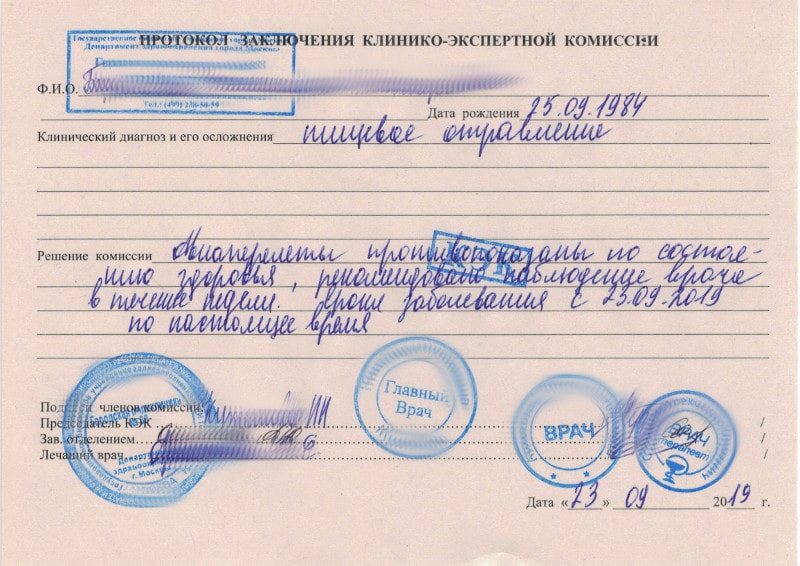 ПРОТОКОЛ ЗАКЛЮЧЕНИЯ КЛИНИКО-ЭКСПЕРТНОЙ КОМИССИИ
Государственное
Департамент здравоохранения города Москвы
Ф.И.О.
Дата рождения 25.09.1984
Клинический диагноз и его осложнения пищевое отравление
Решение комиссии Авиаперелеты противопоказаны по состоя-
нию здоровья, рекомендовано наблюдение врача
в течение недели. Сроки заболевания с 23.09.2019
по настоящее время
КЭК
Подписи членов комиссии:
Председатель КЭК
Зав. отделением
Лечащий врач
Главный
Врач
ВРАЧ
* *
ВРАЧ
терапевт
Городской поликлиники
г. Москвы
Дата «23» 09 2019 г.